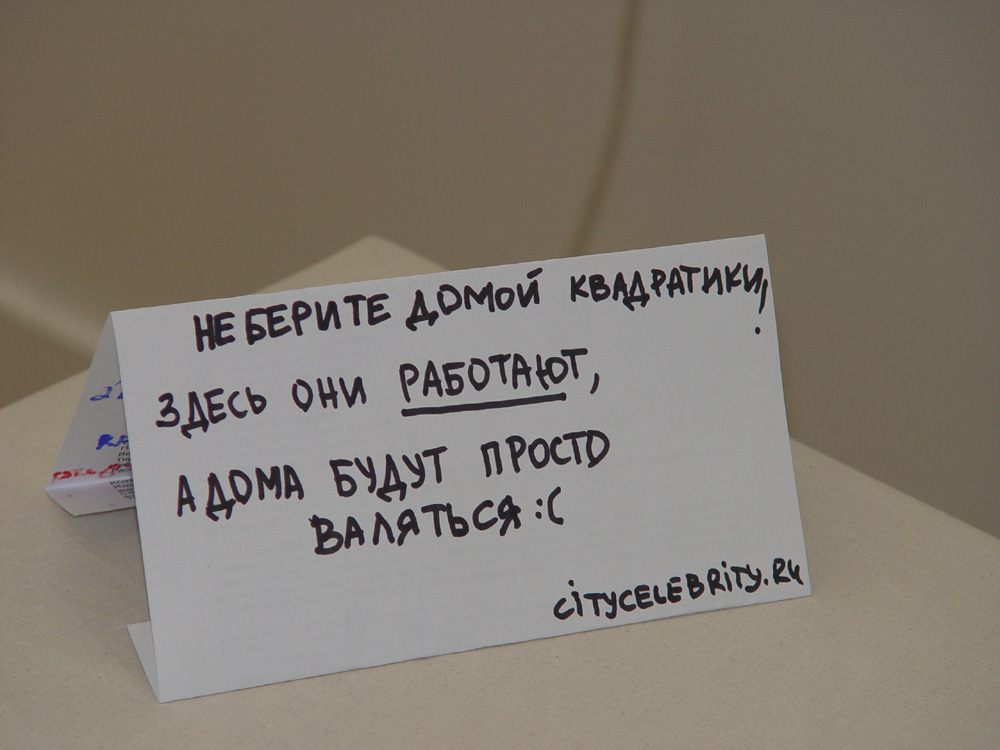 НЕ БЕРИТЕ ДОМОЙ КВАДРАТИКИ!
ЗДЕСЬ ОНИ РАБОТАЮТ,
А ДОМА БУДУТ ПРОСТО
ВАЛЯТЬСЯ :(
CITYCELEBRITY.RU